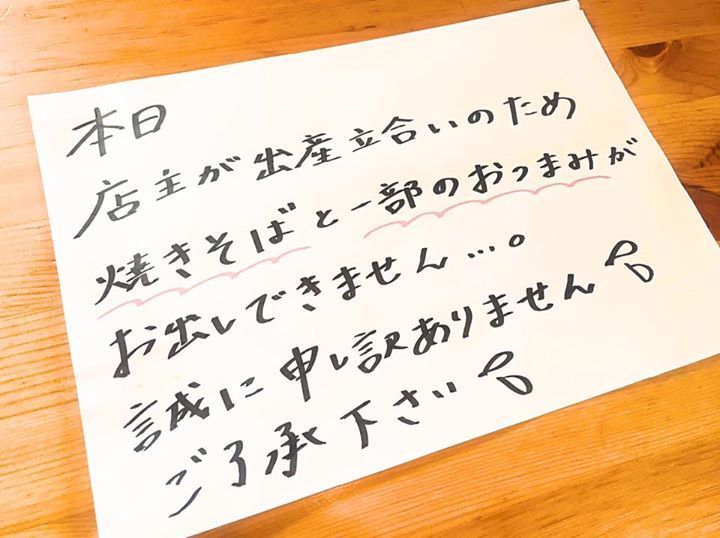 本日
店主が出産立合いのため
焼きそばと一部のおつまみが
お出しできません…。
誠に申し訳ありません
ご了承下さい